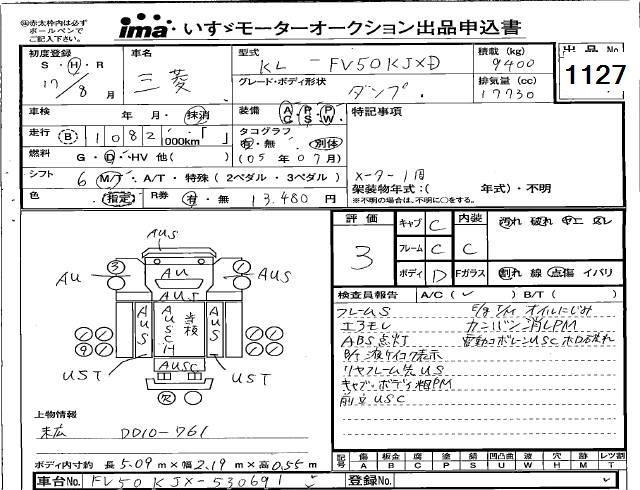 ㊟赤太枠内は必ず
ボールペンで
ご記入下さい。
ima いすゞモーターオークション出品申込書
初度登録
S・H・R
17/8月
車名
三菱
型式
KL-FV50KJXD
積載 (kg)
9400
出品 No
1127
グレード・ボディ形状
ダンプ
排気量 (cc)
17730
車検
年 月・抹消
装備
AC・PS・PW
特記事項
走行
B 1082 000km「 」
タコグラフ
有・無 別体
(05年07月)
燃料
G・D・HV 他( )
シフト
6 M/T・A/T・特殊 (2ペダル・3ペダル)
メーター1周
架装物年式:( 年式)・不明
※不明の場合は、不明に○をする。
色
(指定)
R券
有・無
13,480円
評価
3
キャブ C
フレーム C
ボディ D
内装
C
Fガラス
汚れ 破れ コゲ スレ
割れ 線 点傷 イバリ
検査員報告
A/C( ✓ )
B/T( )
フレームS
エアモレ
ABS点灯
リヤフレーム先US
キャブ・ボディ相PM
前立USC
E/g T/M オイルにじみ
カンバン消しPM
AUS
3
1
AU
AU
AUS
AUS
AUS
AUSC
AUS
UST
UST
AUSC
上物情報
末広 DD10-761
ボディ内寸約 長 5.09 m×幅 2.19 m×高 0.55 m
記号
傷 A
板金 B
腐 C
塗 P
錆 S
凹凸曲 U
波 W
穴 H
跡 M
レツ割 T
車台No.
FV50KJX-530691
登録No.